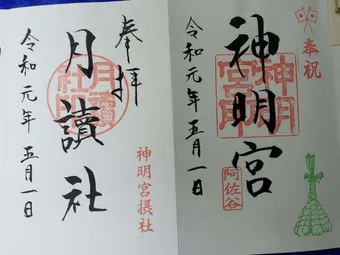 奉祝
神明宮
神明宮印
阿佐谷
令和元年五月一日
奉拝
月讀社
月讀社印
神明宮摂社
令和元年五月一日